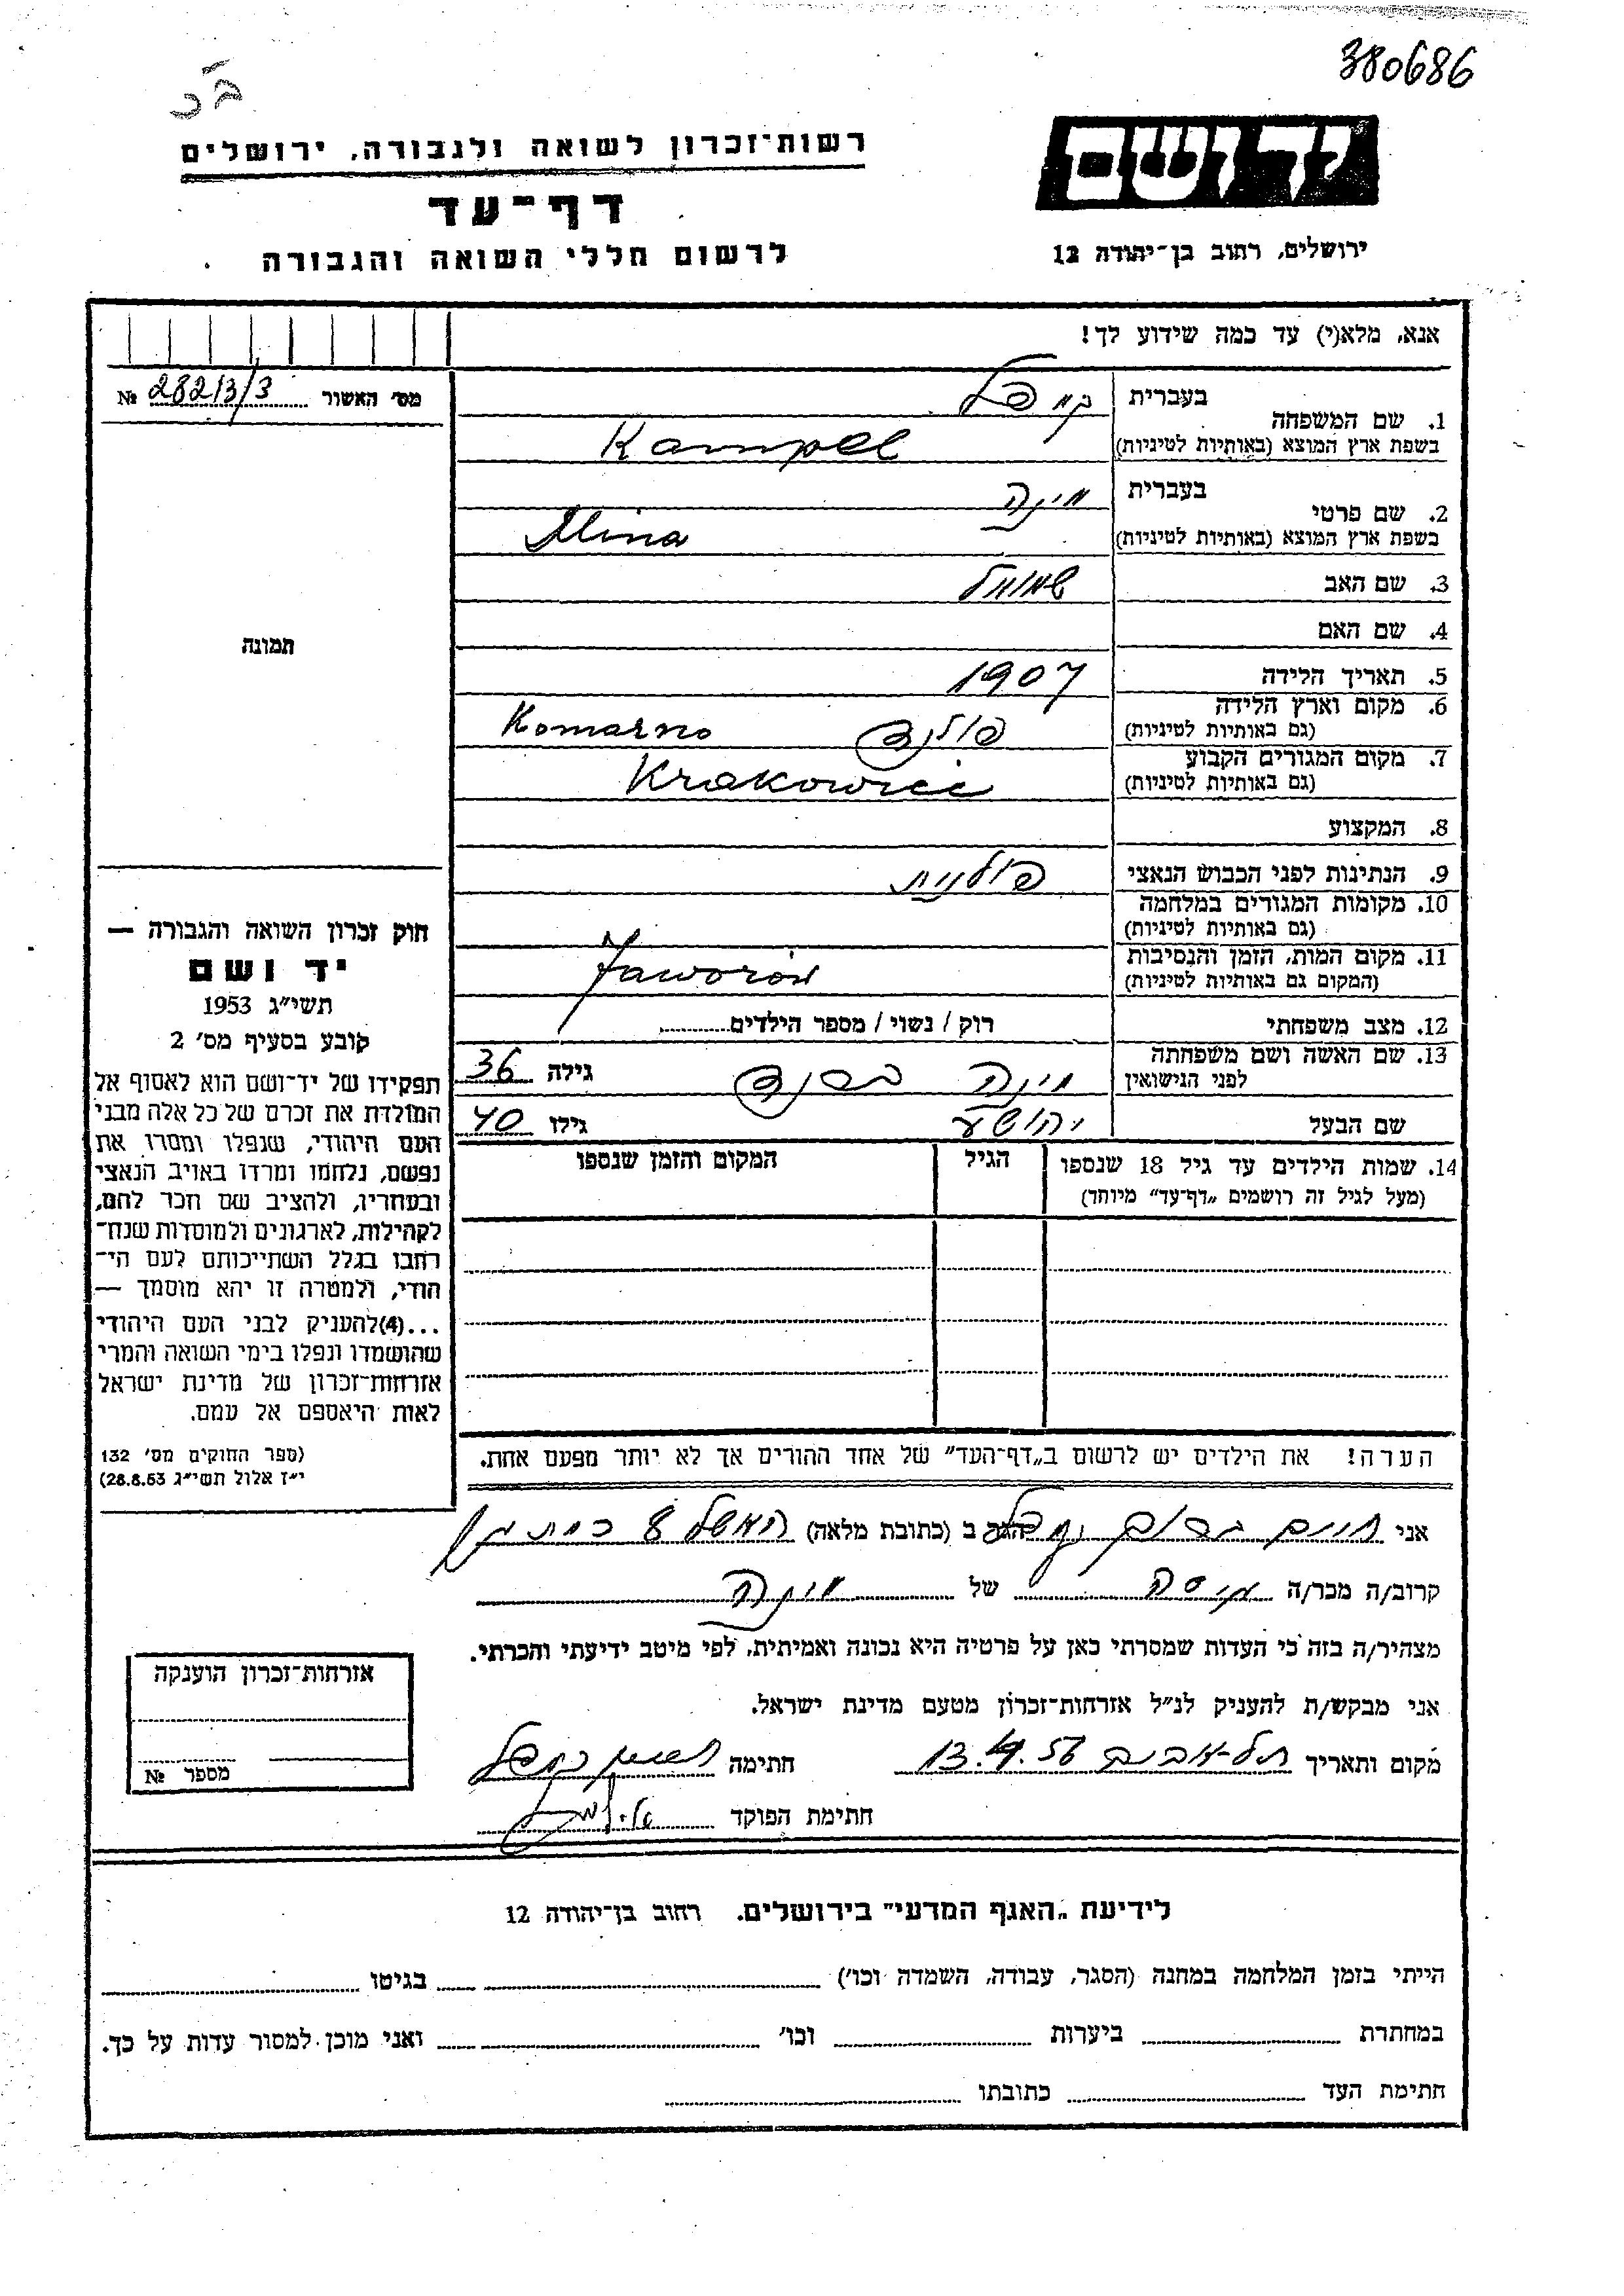 380686
ב״כ
יד ושם
רשות־זכרון לשואה ולגבורה, ירושלים
דף־עד
לרשום חללי השואה והגבורה
ירושלים, רחוב בן־יהודה 12
אנא, מלא(י) עד כמה שידוע לך!
מס׳ האשור 28213/3 №
1. שם המשפחה בעברית קמפל
בשפת ארץ המוצא (באותיות לטיניות) Kampel
2. שם פרטי בעברית מינה
בשפת ארץ המוצא (באותיות לטיניות) Mina
3. שם האב שמואל
4. שם האם
5. תאריך הלידה 1907
6. מקום וארץ הלידה (גם באותיות לטיניות) פולין Komarno
7. מקום המגורים הקבוע (גם באותיות לטיניות) Krakowiec
8. המקצוע
9. הנתינות לפני הכבוש הנאצי פולנית
10. מקומות המגורים במלחמה (גם באותיות לטיניות)
11. מקום המות, הזמן והנסיבות (המקום גם באותיות לטיניות) Jaworów
12. מצב משפחתי רוק / נשוי / מספר הילדים
13. שם האשה ושם משפחתה לפני הנישואין מינה גילה 36
שם הבעל יהושע גילו 40
14. שמות הילדים עד גיל 18 שנספו הגיל המקום והזמן שנספו
(מעל לגיל זה רושמים „דף־עד” מיוחד)
הערה! את הילדים יש לרשום ב„דף־העד” של אחד ההורים אך לא יותר מפעם אחת.
תמונה
חוק זכרון השואה והגבורה —
יד ושם
תשי״ג 1953
קובע בסעיף מס׳ 2
תפקידו של יד־ושם הוא לאסוף אל
המולדת את זכרם של כל אלה מבני
העם היהודי, שנפלו ומסרו את
נפשם, נלחמו ומרדו באויב הנאצי
ובעוזריו, ולהציב שם וזכר להם,
לקהילות, לארגונים ולמוסדות שנח־
רבו בגלל השתייכותם לעם הי־
הודי, ולמטרה זו יהא מוסמך —
...(4)להעניק לבני העם היהודי
שהושמדו ונפלו בימי השואה והמרי
אזרחות־זכרון של מדינת ישראל
לאות היאספם אל עמם.
(ספר החוקים מס׳ 132
י״ז אלול תשי״ג 28.8.53)
אני חיים קמפל הגר ב (כתובת מלאה)
קרוב/ה מכר/ה גיסה של מינה
מצהיר/ה בזה כי העדות שמסרתי כאן על פרטיה היא נכונה ואמיתית, לפי מיטב ידיעתי והכרתי.
אני מבקש/ת להעניק לנ״ל אזרחות־זכרון מטעם מדינת ישראל.
מקום ותאריך תל־אביב 13.4.56 חתימה
חתימת הפוקד
אזרחות־זכרון הוענקה
מספר №
לידיעת „האגף המדעי” בירושלים, רחוב בן־יהודה 12
הייתי בזמן המלחמה במחנה (הסגר, עבודה, השמדה וכו׳) בגיטו
במחתרת ביערות וכו׳ ואני מוכן למסור עדות על כך.
חתימת העד כתובתו